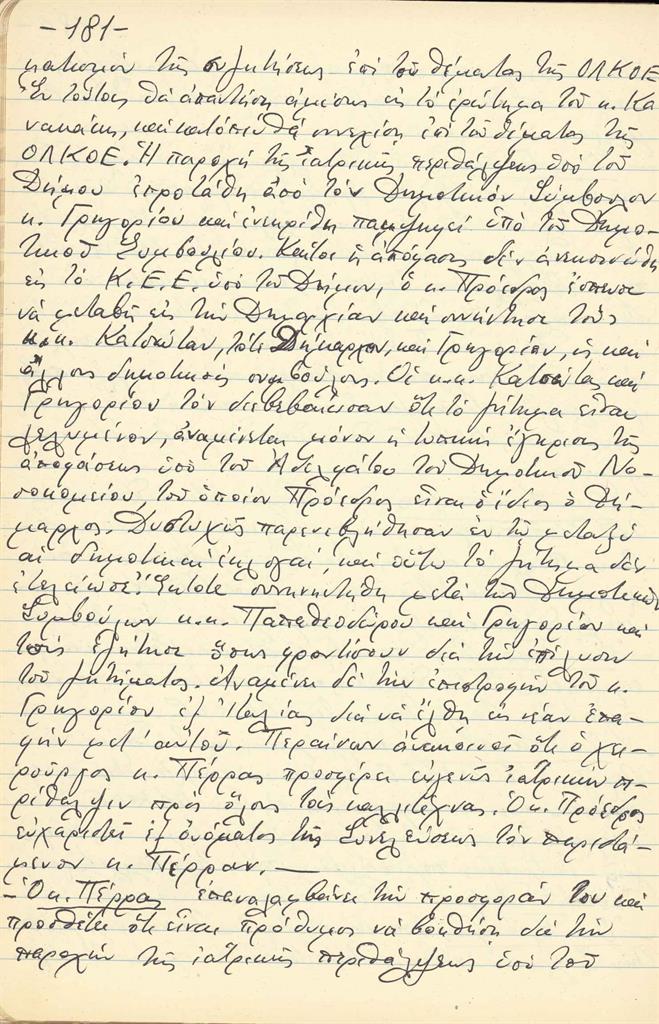 -181-
τῆς συζητήσεως ἐπὶ τοῦ θέματος τῆς ΟΛΚΟΕ
Ἐν τούτοις θὰ ἀπαντήσῃ ἀμέσως εἰς τὸ ἐρώτημα τοῦ κ. Κα-
νακάκη, καὶ κατόπιν θὰ συνεχίσῃ ἐπὶ τοῦ θέματος τῆς
ΟΛΚΟΕ. Ἡ παροχὴ τῆς ἰατρικῆς περιθάλψεως ὑπὸ τοῦ
Δήμου ἐπροτάθη ἀπὸ τὸν Δημοτικόν Σύμβουλον
κ. Γρηγορίου καὶ ἐνεκρίθη παμψηφεί ὑπὸ τοῦ Δημο-
τικοῦ Συμβουλίου. Καίτοι ἡ ἀπόφασις δὲν ἀνεκοινώθη
εἰς τὸ Κ.Ε.Ε. ὑπὸ τοῦ Δήμου, ὁ κ. Πρόεδρος ἔσπευσε
νὰ μεταβῇ εἰς τὴν Δημαρχίαν καὶ συνήντησε τοὺς
κ.κ. Κατσώταν, τότε Δήμαρχον, καὶ Γρηγορίου, ὡς καὶ
ἄλλους δημοτικούς συμβούλους. Οἱ κ.κ. Κατσώτας καὶ
Γρηγορίου τὸν διεβεβαίωσαν ὅτι τὸ ζήτημα εἶναι
λελυμένον, ἀναμένεται μόνον ἡ τυπική ἔγκρισις τῆς
ἀποφάσεως ὑπὸ τοῦ Ἀδελφάτου τοῦ Δημοτικοῦ Νο-
σοκομείου, τοῦ ὁποίου Πρόεδρος εἶναι ὁ ἴδιος ὁ Δή-
μαρχος. Δυστυχῶς παρενεβλήθησαν ἐν τῷ μεταξὺ
αἱ δημοτικαὶ ἐκλογαί, καὶ οὕτω τὸ ζήτημα δὲν
ἐτελείωσε. Ἔκτοτε συνηντήθη μετὰ τῶν Δημοτικῶν
Συμβούλων κ.κ. Παπαθεοδώρου καὶ Γρηγορίου καὶ
τοὺς ἐζήτησε ὅπως φροντίσουν διὰ τὴν ἐπίλυσιν
τοῦ ζητήματος. Ἀναμένει δὲ τὴν ἐπιστροφὴν τοῦ κ.
Γρηγορίου ἐξ Ἰταλίας διὰ νὰ ἔλθῃ εἰς νέαν ἐπα-
φὴν μετ' αὐτοῦ. Περαίνων ἀνακοινοῖ ὅτι ὁ χει-
ροῦργος κ. Πέρρας προσφέρει εὐγενῶς ἰατρικὴν πε-
ρίθαλψιν πρὸς ὅλους τοὺς καλλιτέχνας. Ὁ κ. Πρόεδρος
εὐχαριστεῖ ἐξ ὀνόματος τῆς Συνελεύσεως τὸν παριστά-
μενον κ. Πέρραν. —
- Ὁ κ. Πέρρας ἐπαναλαμβάνει τὴν προσφοράν του καὶ
προσθέτει ὅτι εἶναι πρόθυμος νὰ βοηθήσῃ διὰ τὴν
παροχὴν τῆς ἰατρικῆς περιθάλψεως ὑπὸ τοῦ